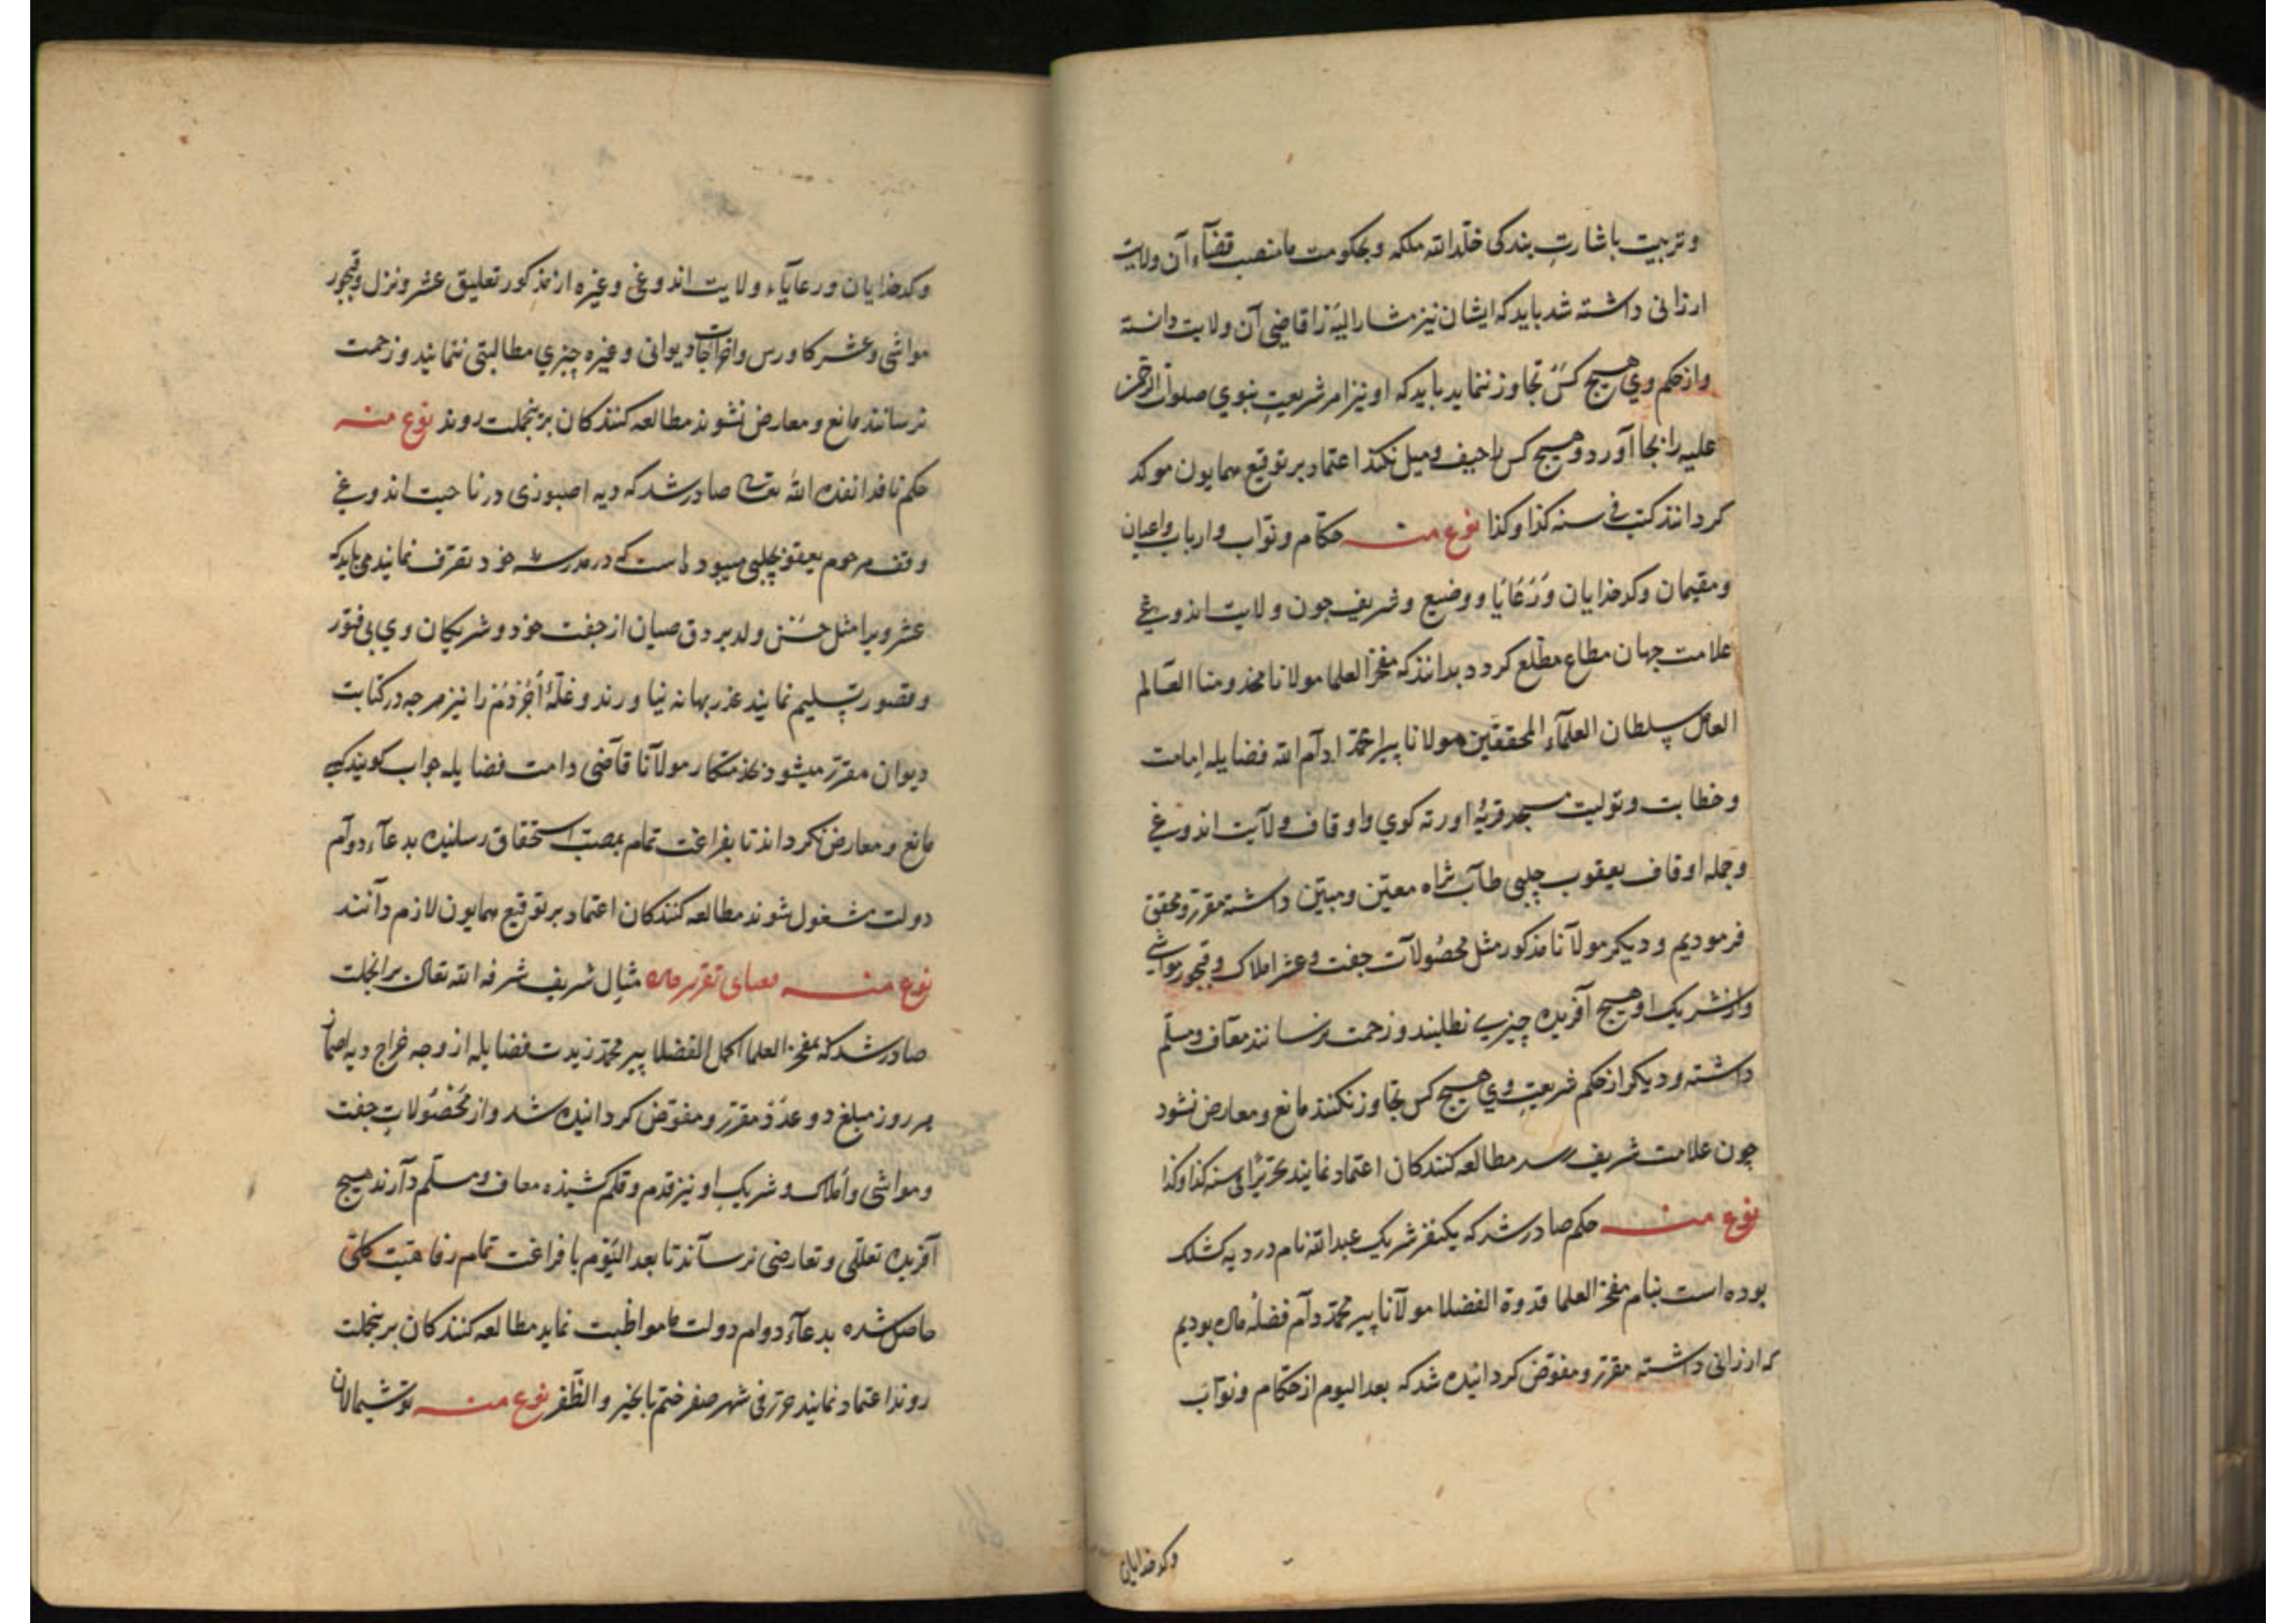 و تربیت باشارت بندکی خلد الله ملکه و بحکومت ما منصب قضآء آن ولایت
ارزانی داشته شد باید که ایشان نیز مشارالیه را قاضی آن ولایت دانسته
و از حکم وی هیچ کس تجاوز ننماید باید که او نیز امر شریعت نبوی صلوات الرحمن
علیه را بجا آورد و هیچ کس را حیف و میل نکند اعتماد بر توقیع همایون موکد
کردانند کتب فی سنه کذا و کذا نوع منه حکام و نواب و ارباب و اعیان
و مقیمان و کدخدایان و رعایا و وضیع و شریف جون ولایت اندوغی
علامت جهان مطاع مطلع کردد بدانند که مفخر العلما مولانا مخدومنا العالم
العامل سلطان العلمآء المحققین مولانا پیر احمد ادآم الله فضایله امامت
و خطابت و تولیت مسجد قریۀ اورته کوی و اوقاف ولآیت اندوغی
و جمله اوقاف یعقوب چلبی طآب ثراه معین و مبین داشته مقرر و محقق
فرمودیم و دیکر مولآنا مذکور مثل محصولآت جفت و عشر املاک و قبجور مواشی
و از شریک او هیچ آفریده چیزی نطلبند و زحمت نرسانند معآف و مسلم
داشته و دیکر از حکم شریعت وی هیچ کس تجاوز نکنند مانع و معارض نشود
چون علامت شریف رسد مطالعه کنندکان اعتماد نمایند تحریرًا فی سنه کذا و کذا
نوع منه حکم صادر شد که یکنفر شریک عبدالله نام در دیه کشلک
بوده است بنام مفخر العلما قدوة الفضلا مولآنا پیر محمد دآم فضله بودیم
که ارزانی داشته مقرر و مفوض کردانیده شد که بعد الیوم از حکام و نوآب
وکدخدایان
و کدخدایان و رعایآء ولایت اندوغی و غیره از مذکور تعلیق عشر و نزل و قبجور
مواشی و عشر کاورس و اخراجات دیوانی و غیره چیزی مطالبتی ننمایند و زحمت
نرسانند مانع و معارض نشوند مطالعه کنندکان برینجملت روند نوع منه
حکم نافد انفده الله تعالی صادر شد که دیه اصبوزی در ناحیت اندوغی
وقف مرحوم یعقوب چلبی است که در مدرسه خود تصرف نمایند می باید که
عشر ویرا مثل حسن ولد از جفت خود و شریکان وی بی فتور
و قصور تسلیم نمایند عذر بهانه نیاورند و غلۀ را نیز هر چه در کتابت
دیوان مقرر میشود بخدمتکار مولآنا قآضی دامت فضایله جواب کویند کسی
مانع و معارض نکرداند تا بفراغت تمام بمصب استحقاق رسانیده بدعآء دوآم
دولت مشغول شوند مطالعه کنندکان اعتماد بر توقیع همایون لازم دآنند
نوع منه بمعنای تقریر مثال شریف شرفه الله تعالی برانجملت
صادر شد که مفخر العلما اکمل الفضلا پیر محمد زیدت فضایله از وجه خراج دیه
هر روز مبلغ دو عدد مقرر و مفوض کردانیده شد و از محصولات جفت
و مواشی و املاک و شریک او نیز قدم و قلم کشیده معاف و مسلم دآرند هیچ
آفریده تعلقی و تعارضی نرسآند تا بعد الیوم با فراغت تمام رفاهیت کلی
حاصل شده بدعآء دوام دولت ما مواظبت نماید مطالعه کنندکان برینجملت
روند اعتماد نمایند حرر فی شهر صفر ختم بالخیر و الظفر نوع منه توشیمالان